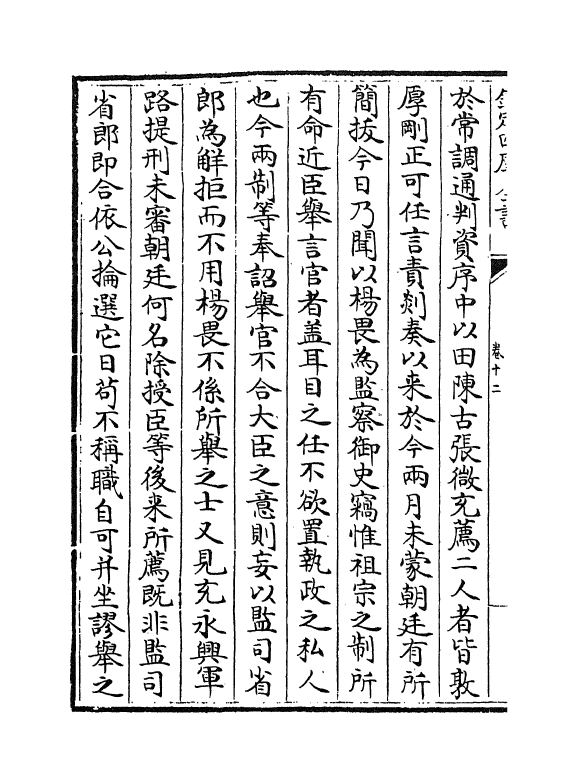 欽定四庫全書
卷十二
於常調通判資序中以田陳古張微充薦二人者皆敦
厚剛正可任言責剡奏以来於今兩月未蒙朝廷有所
簡拔今日乃聞以楊畏為監察御史竊惟祖宗之制所
有命近臣舉言官者盖耳目之任不欲置執政之私人
也今兩制等奉詔舉官不合大臣之意則妄以監司省
郎為觧拒而不用楊畏不係所舉之士又見充永興軍
路提刑未審朝廷何名除授臣等後来所薦既非監司
省郎即合依公掄選它日茍不稱職自可并坐謬舉之